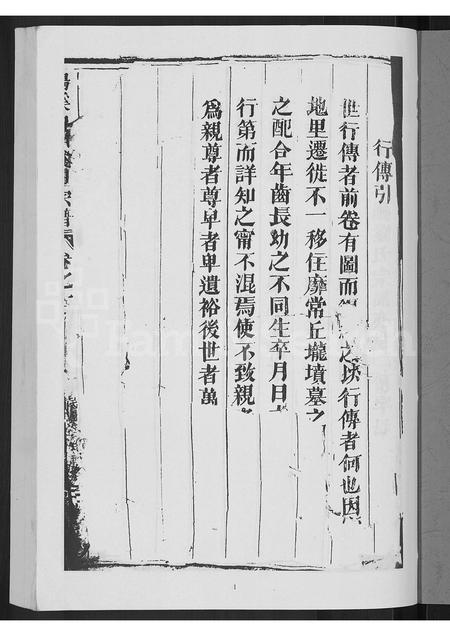 行傳引
世行傳者前卷有圖而 之 行傳者何也因
地里遷徙不一移住靡常丘壠墳墓之
之配合年齒長幼之不同生卒月日
行第而詳知之甯不混焉使不致親
為親尊者尊卑者卑遺裕後世者萬
宗譜 卷
1